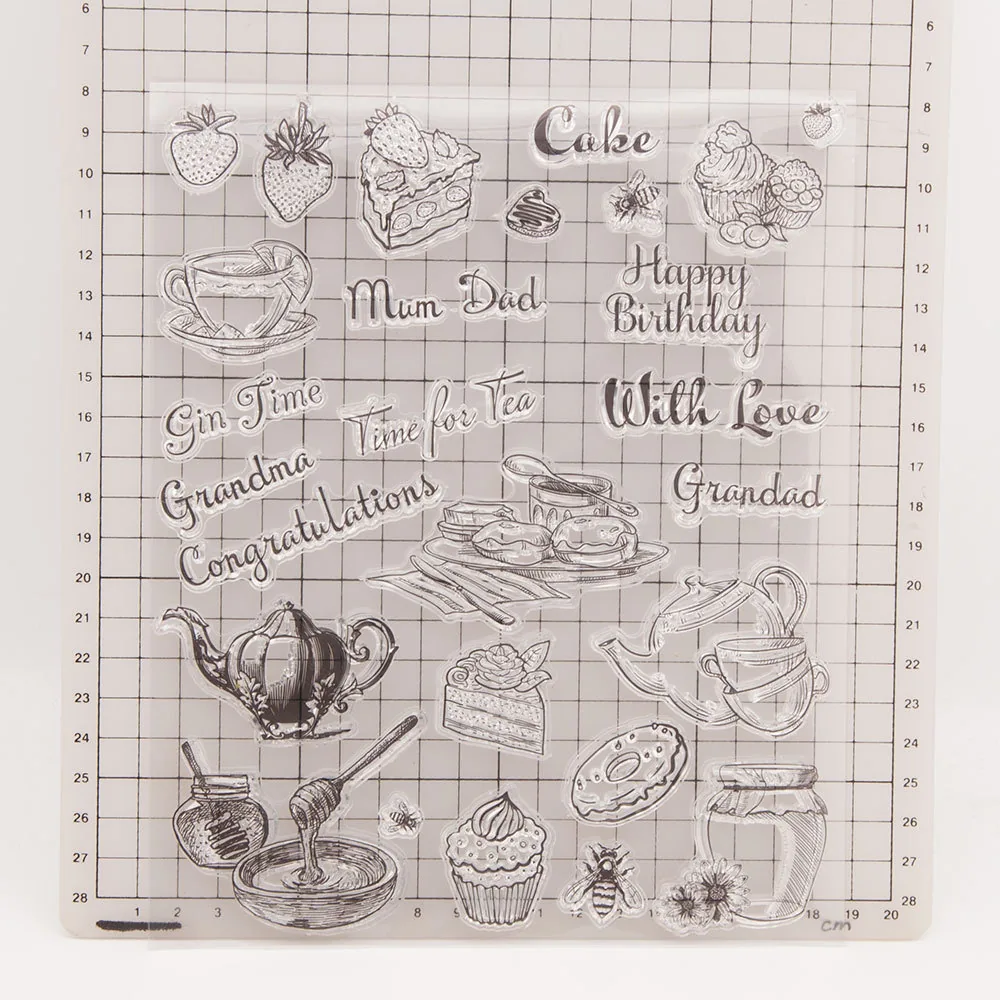 6
7
8
9
10
11
12
13
14
15
16
17
18
19
20
21
22
23
24
25
26
27
28
Cake
Mum Dad
Happy
Birthday
Gin Time
Time for Tea
With Love
Grandma
Congratulations
Grandad
6
7
8
9
10
11
12
13
14
15
16
17
18
19
20
21
22
23
24
25
26
27
28
1 2 3 8 9 11 12 13 18 19 20
cm